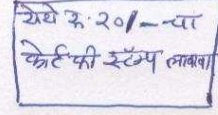 येथे रु. २०/- चा
कोर्ट फी स्टॅम्प लावावा